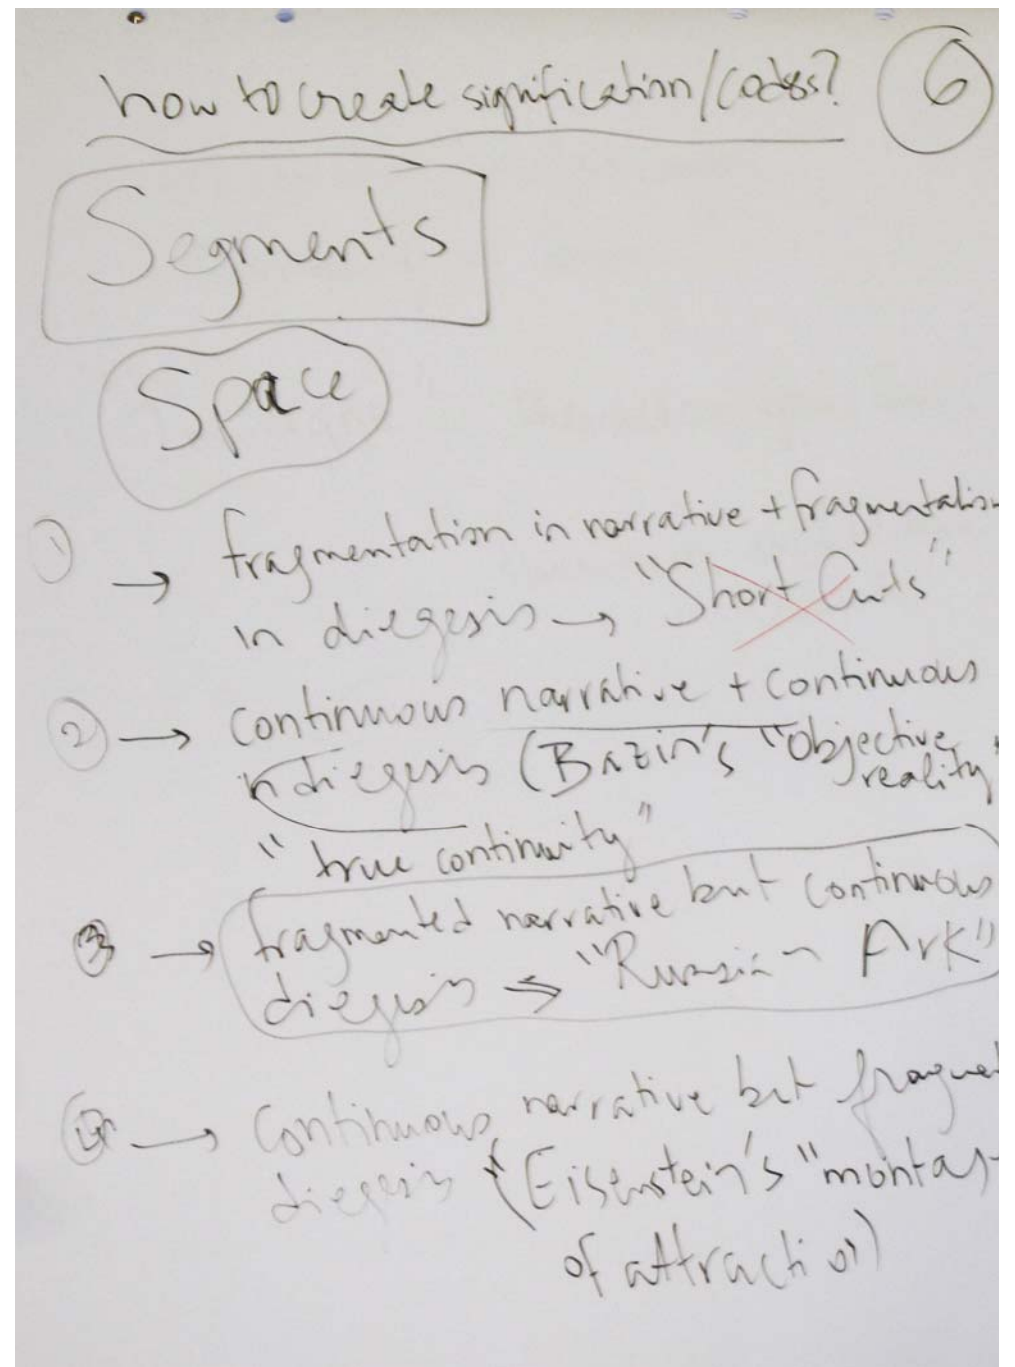 how to create signification/codes? 6
Segments
Space
1 → fragmentation in narrative + fragmentation
in diegesis → "Short Cuts"
2 → continuous narrative + continuous
in diegesis (Bazin's "objective
reality"
"true continuity"
3 → fragmented narrative but continuous
diegesis → "Russian Ark"
4 → Continuous narrative but fragme
diegesis (Eisenstein's "montag
of attraction)